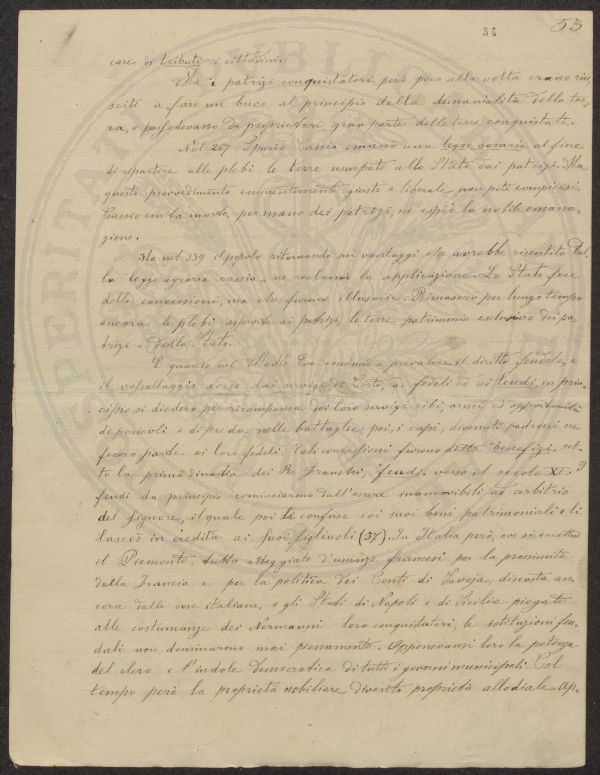 34
53
care di tributi i cittadini.
Ma i patrizi conquistatori però poco alla volta erano riu-
sciti a fare un buco al principio della demanialità della ter-
ra, e possedevano da proprietari gran parte delle terre conquistate.
Nel 267 Spurio Cassio emanò una legge agraria al fine
di ripartire alle plebi le terre usurpate allo Stato dai patrizi. Ma
questo provvedimento eminentemente giusto e liberale non potè compiersi.
Cassio con la morte, per mano dei patrizi, ne espiò la nobile emana-
zione.
Ma nel 339 il popolo ritornando sui vantaggi che avrebbe risentito dal-
la legge agraria cassia, ne reclamò la applicazione. Lo Stato fece
delle concessioni, ma che furono illusorie. Rimasero per lungo tempo
ancora le plebi asservite ai patrizi, le terre patrimonio esclusivo dei pa-
trizi e dello Stato.
E quando nel Medio Evo cominciò a prevalere il diritto feudale, e
il vassallaggio scese dai servigi di Corte, ai fedeli ed ai feudi, in prin-
cipio si diedero per ricompensa dei loro servigi cibi, armi ed opportunità
di pericoli e di preda nelle battaglie; poi, i capi, divenuti padroni ne
fecero parte ai loro fedeli. Tali concessioni furono dette benefizi sot-
to la prima dinastia dei Re Franchi, feudi verso il secolo XI. I
feudi da principio cominciarono dall'essere inamovibili ad arbitrio
del Signore, il quale poi li confuse coi suoi beni patrimoniali e li
lasciò in eredità ai suoi figliuoli (57). In Italia però, ove si eccettui
il Piemonte, tutto atteggiato d'usanze francesi per la prossimità
della Francia e per la politica dei Conti di Savoja, discosta an-
cora dalle cose italiane, e gli Stati di Napoli e di Sicilia piegati
alle costumanze dei Normanni loro conquistatori, le istituzioni feu-
dali non dominarono mai pienamente. Opponevansi loro la potenza
del clero e l'indole democratica di tutti i governi municipali. Col
tempo però la proprietà nobiliare diventò proprietà allodiale. Ap-